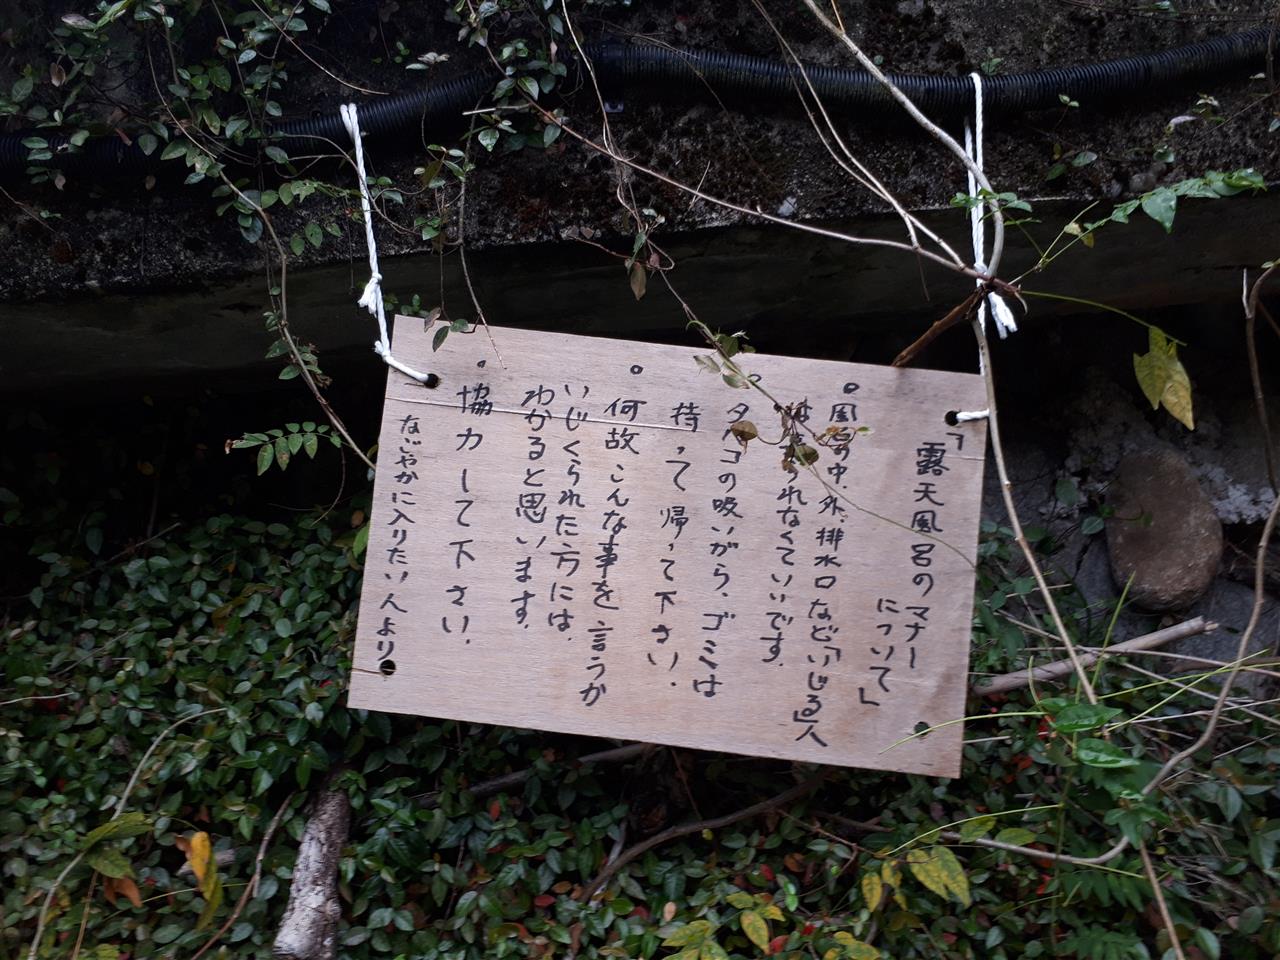 「露天風呂のマナー
について」
。風呂の中、外、排水口など「いじる」人
られなくていいです。
。タバコの吸いがら、ゴミは
持って帰って下さい.
。何故こんな事を言うか
いじくられた方には、
わかると思います.
・協力して下さい.
なごやかに入りたい人より